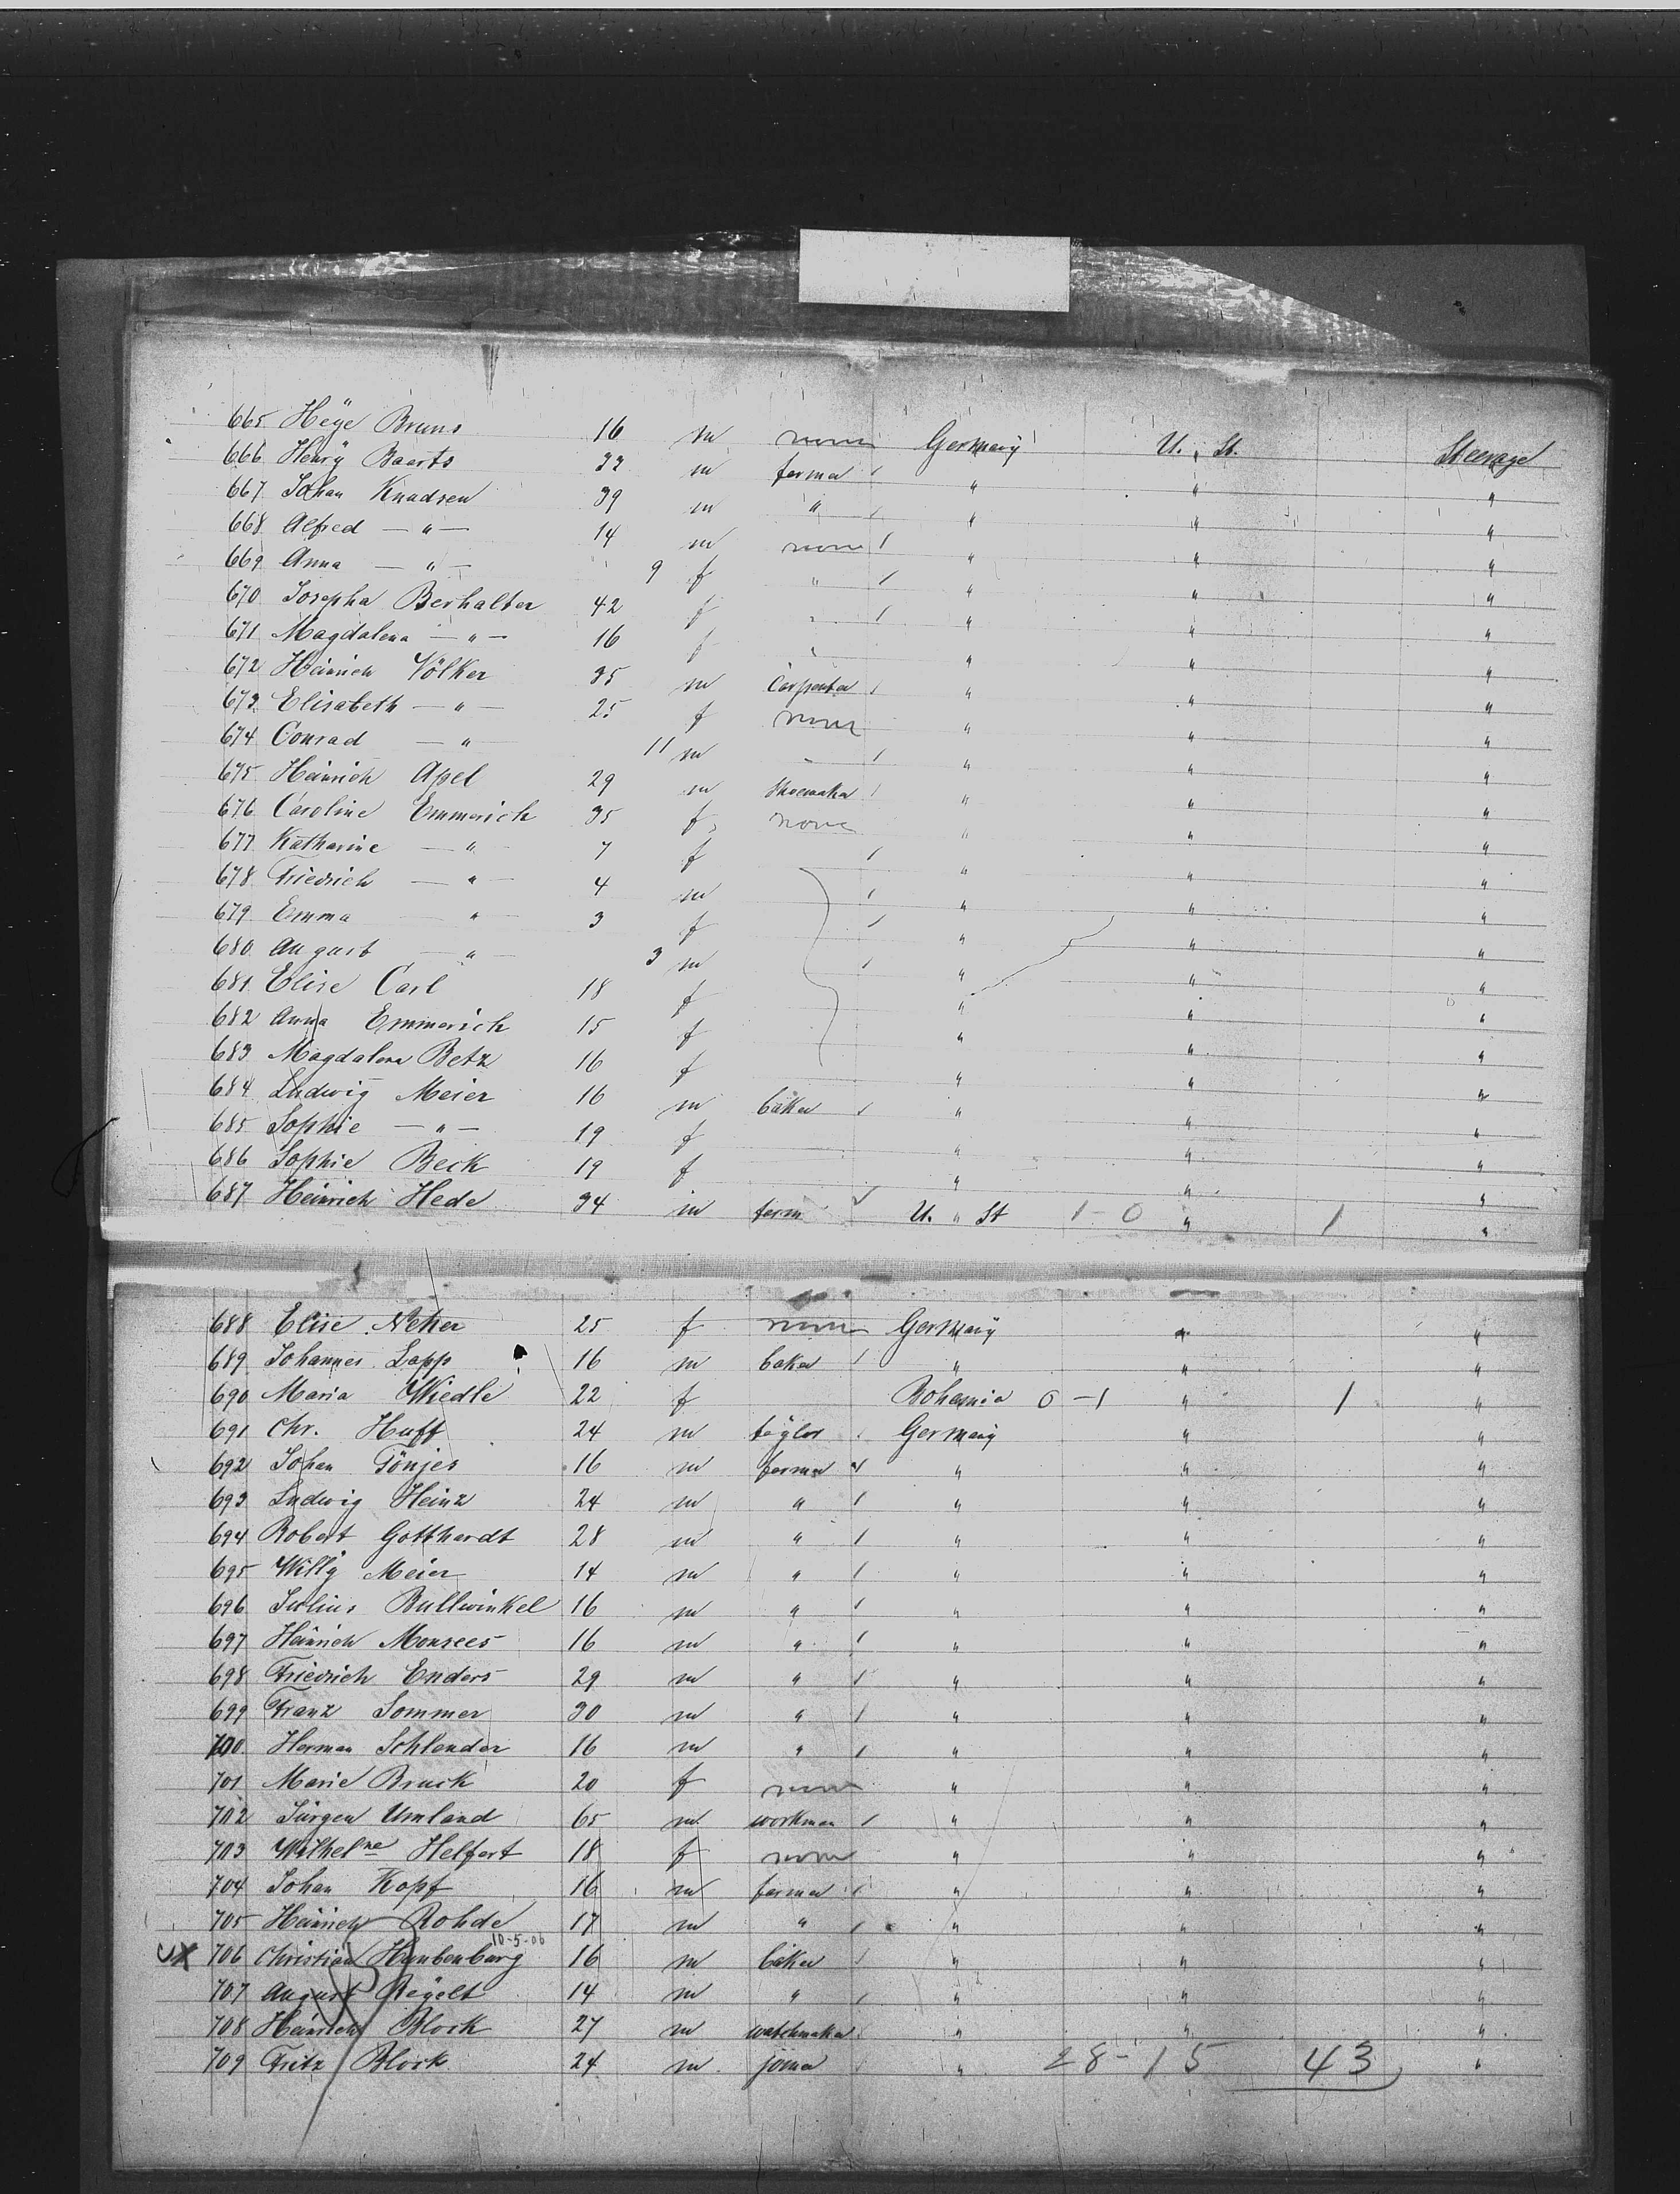 665 Heye Bruns 16 m none Germany U. " St. Steerage
666 Henry Baarts 32 m farmer / " " "
667 Johan Knudsen 39 m " / " " "
668 Alfred — " — 14 m none / " " "
669 Anna — " — 9 f " / " " "
670 Josepha Berhalter 42 f " / " " "
671 Magdalena — " — 16 f " " " "
672 Heinrich Völker 35 m Carpenter / " " "
673 Elisabeth — " — 25 f none " " "
674 Conrad — " 11 m / " " "
675 Heinrich Apel 29 m Shoemaker / " " "
676 Caroline Emmerich 35 f none " " "
677 Katharine — " 7 f / " " "
678 Friedrich — " — 4 m / " " "
679 Emma " — 3 f / " " "
680 August — " — 3 m / " " "
681 Elise Carl 18 f " " "
682 Anna Emmerich 15 f " " "
683 Magdalena Betz 16 f " " "
684 Ludwig Meier 16 m baker / " " "
685 Sophie — " — 19 f " " "
686 Sophie Beck 19 f " " "
687 Heinrich Hede 34 m farm U. " St 1-0 " 1 "
688 Elise Neher 25 f none Germany " "
689 Johannes Lapp 16 m baker / " " "
690 Maria Wiedle 22 f Bohemia 0-1 " 1 "
691 Chr. Huff 24 m taylor Germany " "
692 Johan Tönjes 16 m farmer / " " "
693 Ludwig Heinz 24 m " / " " "
694 Robert Gotthardt 28 m " / " " "
695 Willy Meier 14 m " / " " "
696 Julius Bullwinkel 16 m " / " " "
697 Heinrich Monsees 16 m " / " " "
698 Friedrich Enders 29 m " / " " "
699 Franz Sommer 30 m " / " " "
700 Herman Schlender 16 m " / " " "
701 Marie Bruck 20 f none " " "
702 Jürgen Umland 65 m workman / " " "
703 Wilhelne Helfert 18 f none " " "
704 Johan Kopf 16 m farmer / " " "
705 Heinrich Rohde 17 m " / " " "
10-5-06
X 706 Christian 16 m baker / " " "
707 August 14 m " / " " "
708 Heinrich Block 27 m watchmaker / " " "
709 Fritz Block 24 m joiner / " 28-15 43 "